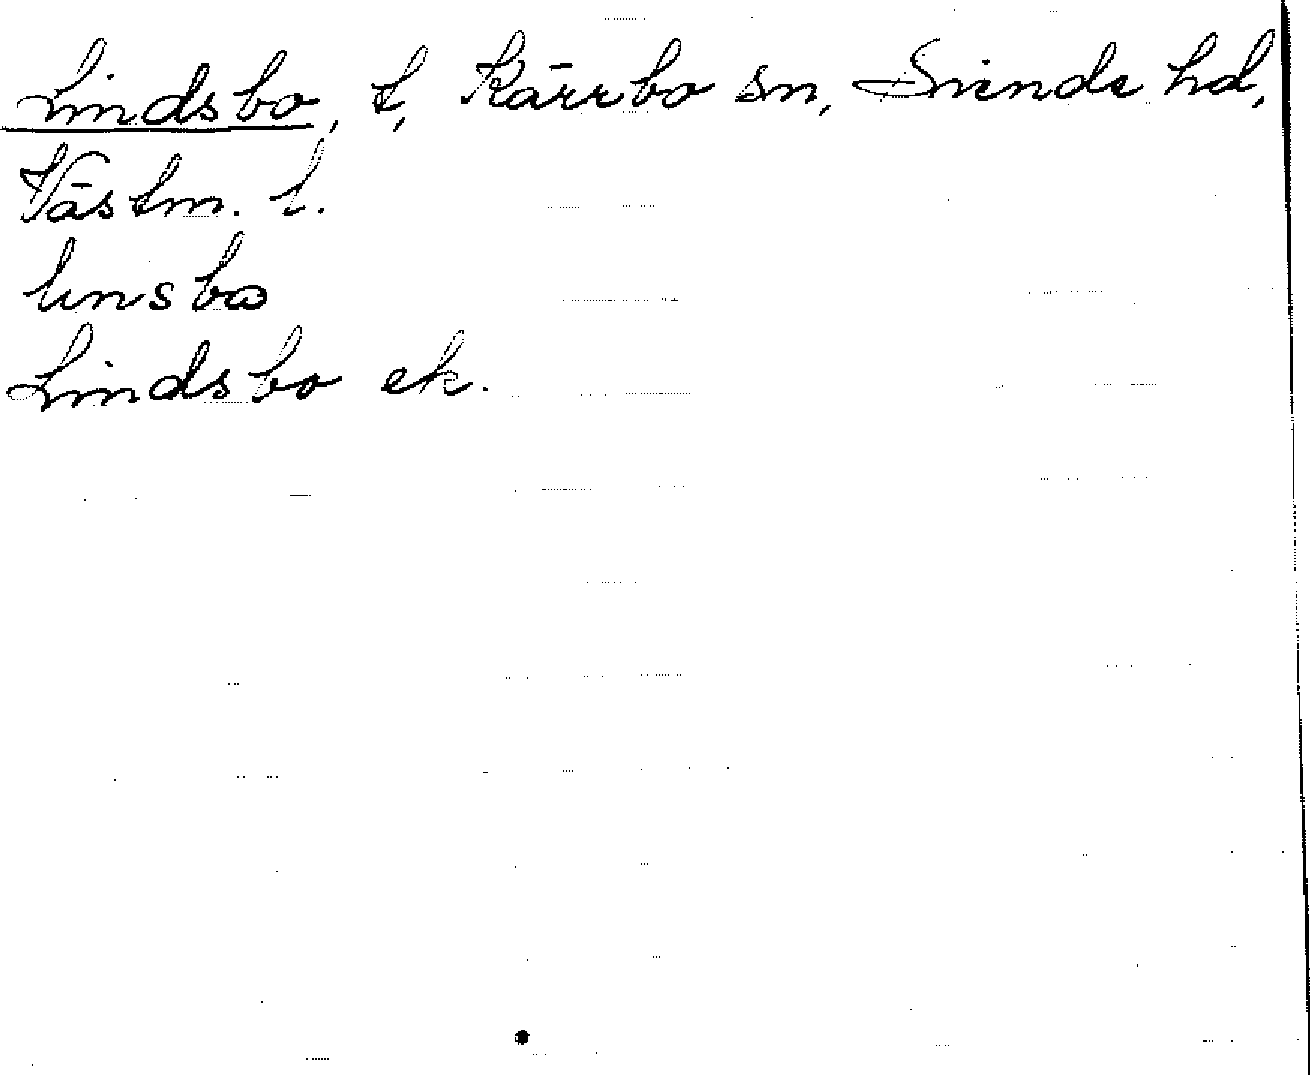 Lindsbo, t, Kärrbo sn, Siende hd,
Västm. l.
linsbo
Lindsbo ek.